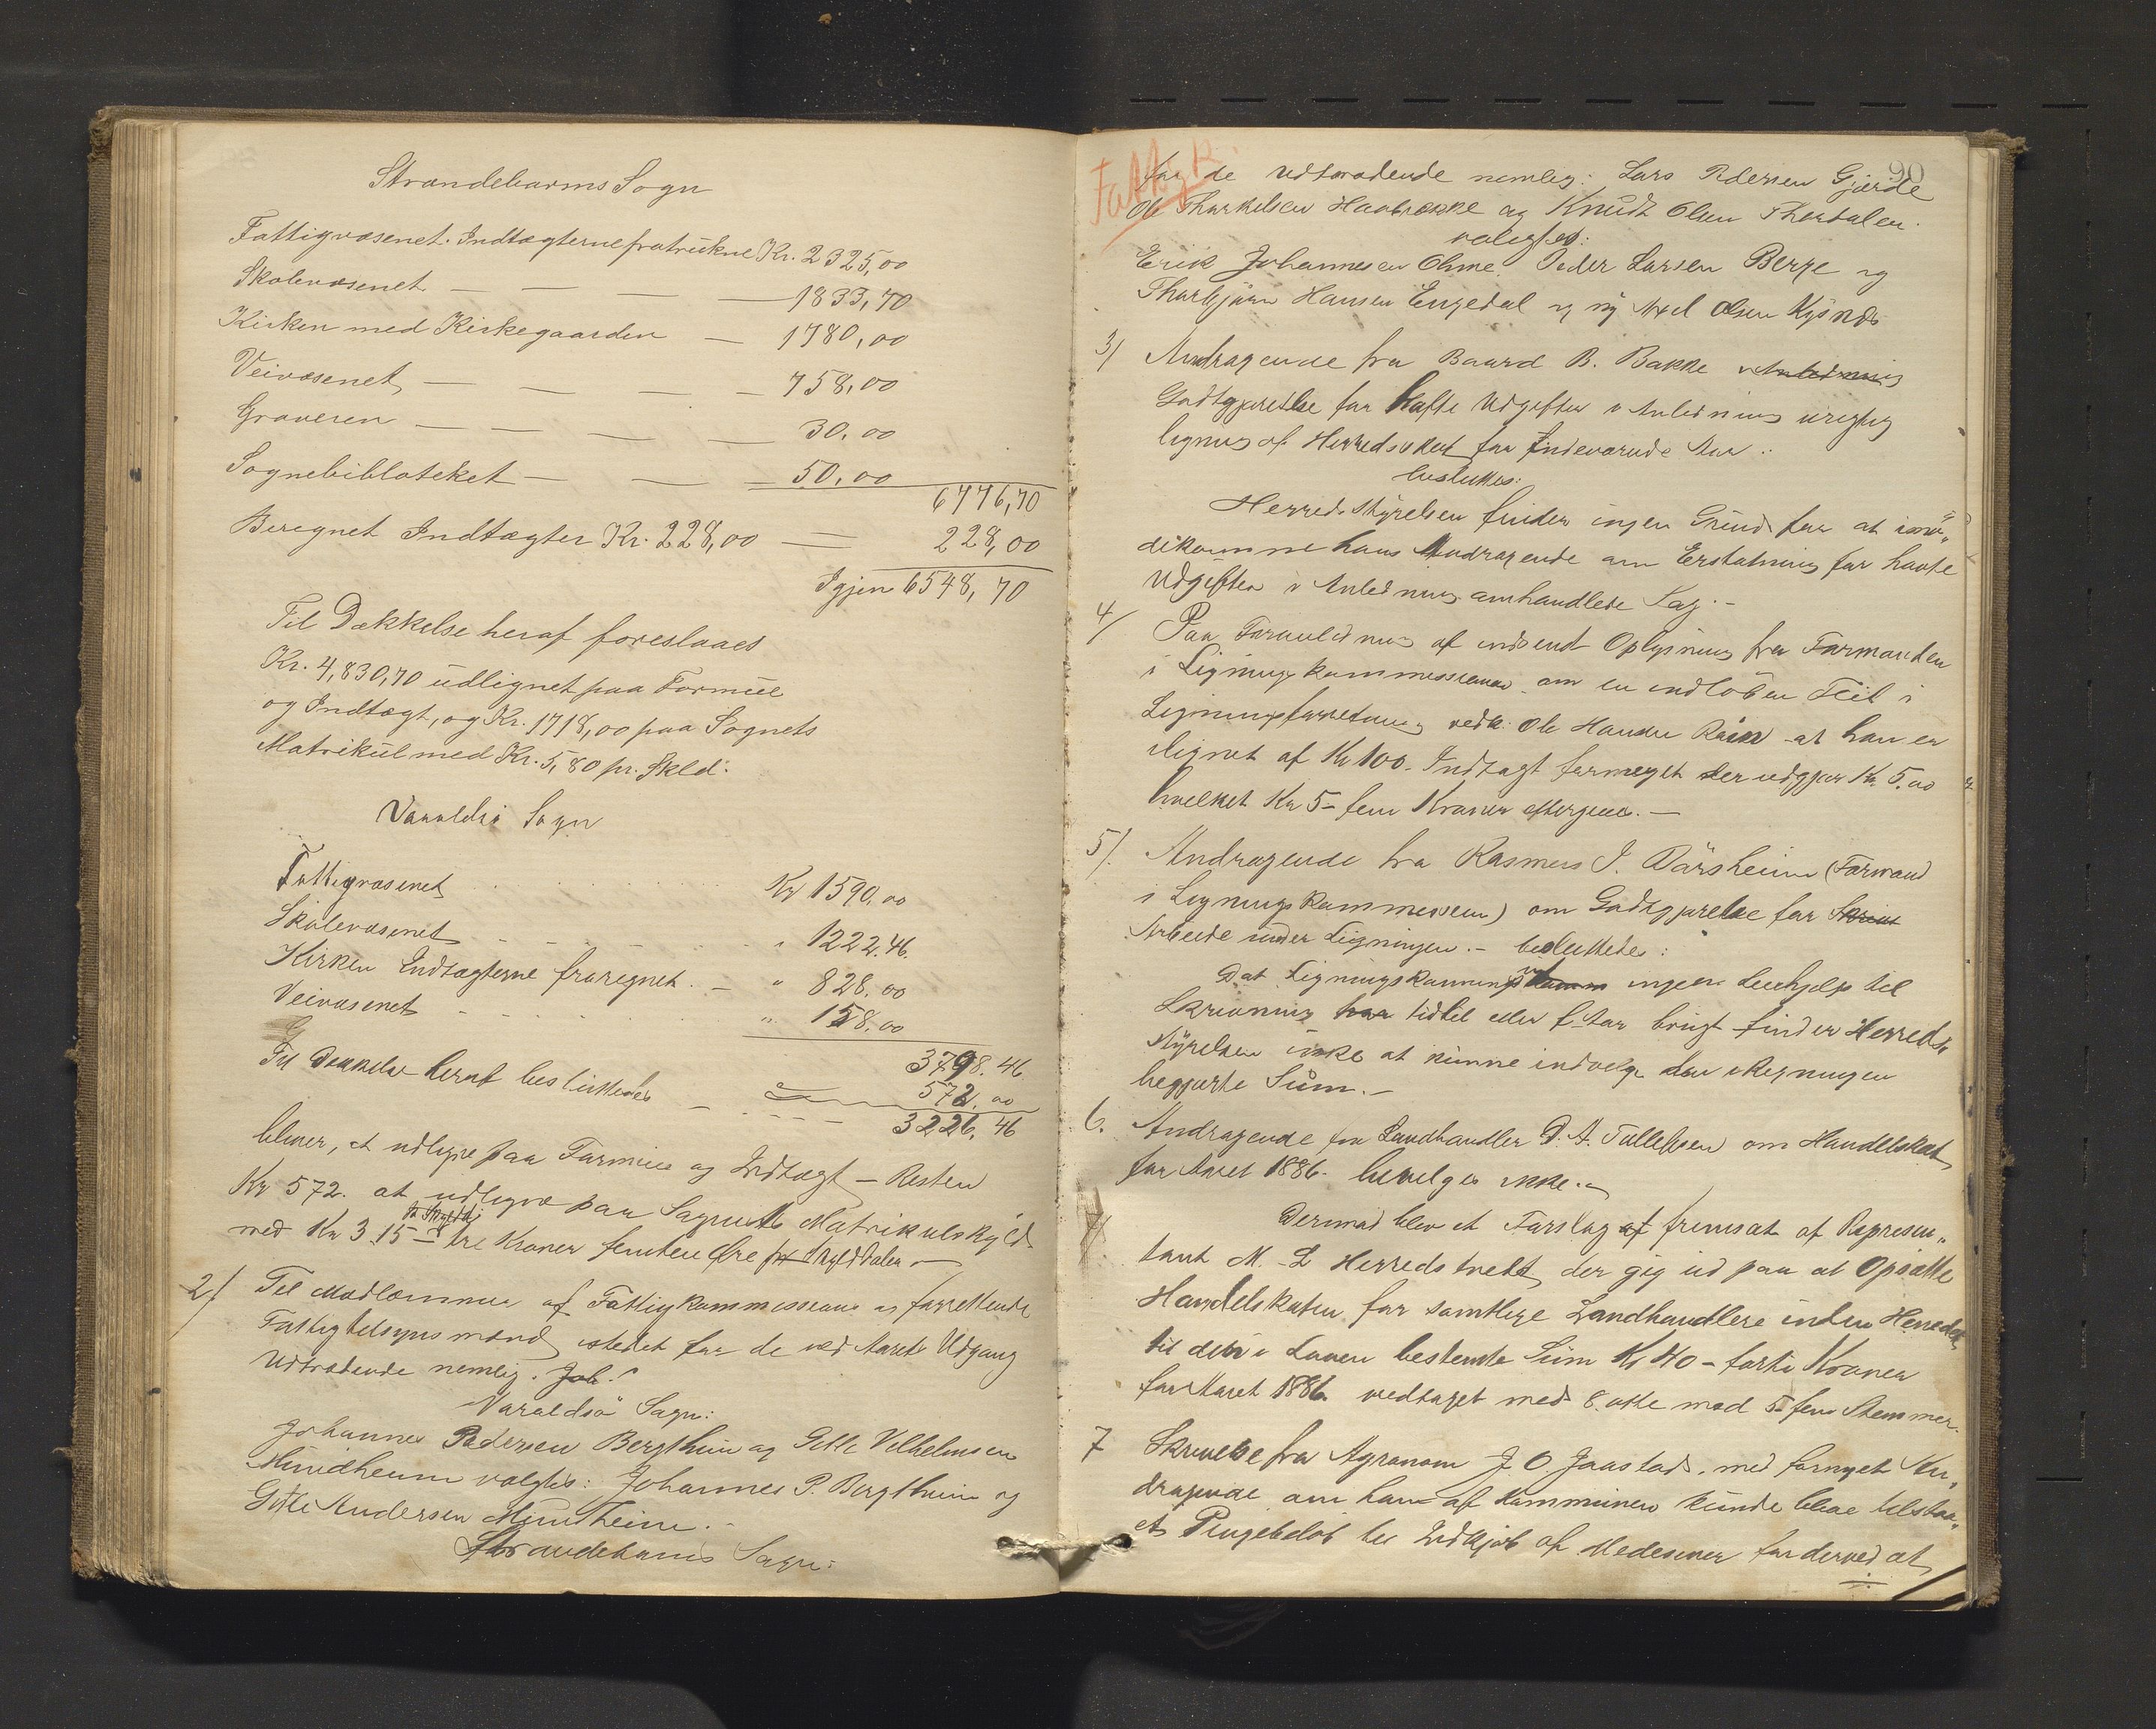 Strandebarms Sogn
Fattigvæsenet. Indtægterne fratrukne Kr. 2325,00
Skolevæsenet — — — — 1833,70
Kirken med Kirkegaarden — 1780,00
Veivæsenet — — — — 758,00
Graveren — — — — 30,00
Sognebibliotheket — — — 50,00
6776,70
Beregnet Indtægter Kr. 228,00 — 228,00
Igjen 6548,70
Til Dækkelse heraf foreslaaes
Kr. 4,830,70 udlignet paa Formue
og Indtægt, og Kr. 1718,00 paa Sognets
Matrikul med Kr. 5,80 pr. Skld.
Varaldsö Sogn
Fattigvæsenet Kr 1590,00
Skolevæsenet " 1222.46.
Kirken Indtægterne fraregnet. — " 828.00
Veivæsenet " 158.00
3798.46
Til Dækkelse heraf besluttedes — 572.00
3226.46
bliver, at udligne paa Formue og Indtægt – Resten
Kr 572. at udligne paa Sognets Matrikulskyld
pr Skyldd.
med Kr 3.15 – tre Kroner femten Øre pr Skylddaler —
2/ Til Medlemmer af Fattigkommissionen og forrettende
Fattigtilsynsmænd istedet for de ved Aarets Udgang
Udtrædende nemlig. Joh.
Varaldsö Sogn:
Johannes Pedersen Bergthun og Gitle Vilhelmsen
Mundheim valgtes: Johannes P. Bergthun og
Gitle Andersen Mundheim.
Strandebarms Sogn:
90
Fattigk.
for de udtrædende nemlig: Lars Pedersen Gjerde
Ole Thorkelsen Haabrekke og Knudt Olsen Thordalen.
valgtes:
Erik Johannesen Ohme. Peder Larsen Berge og
Thorbjörn Hansen Engedal og ny Axel Olsen Kysnes
3/ Andragende fra Baard B. Bakke i Anledning
Godtgjørelse for hafte Udgifter i Anledning urigtig
ligning af Herredsskat for Indeværende Aar.
besluttes:
Herredsstyrelsen finder ingen Grund for at imö„
dekomme hans Andragende om Erstatning for havte
Udgifter i Anledning omhandlede Sag. –
4/ Paa Foranledning af indsendt Oplysning fra Formanden
i Ligningskommissionen om en indlöben Feil i
Ligningsforretning vedk. Ole Hansen at han er
lignet af Kr 100. Indtægt formeget der udgjør Kr. 5.00
hvilket Kr 5 – fem Kroner eftergives. —
5/. Andragende fra Rasmus I. (Formand
i Ligningskommissionen) om Godtgjørelse for Skrive
Arbeide under Ligningen. – besluttedes:
Dat Ligningskommissionen ingen Leiehjelp til
Skrivning har tidtil eller f. Aar brugt finder Herreds
styrelsen ikke at kunne indvilge den i Regningen
begjærte Süm. –
6. Andragende fra Landhandler D. A. Tollefsen om Handelskat
for Aaret 1886. bevilges ikke. –
7/. Dermed blev et Forslag af fremsat af Represen„
tant M. L Herredstveit, der gig ud paa at Opsætte
Handelskaten for samtlige Landhandlere inden Herredet
til den i Loven bestemte Süm Kr 40 – förti Kroner
for Aaret 1886. vedtaget med 8. otte mod 5 fem Stemmer.
7 Skrivelse fra Agronom J. O. Jaastad, med fornyet An„
dragende om han af Kommunen kunde blive tilstaa„
et Pengebelöb til Indkjöb af Medesiner for derved at